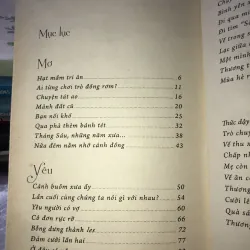 Mục lục
Mơ
Hạt mầm tri ân 6
Ai từng chơi trò đống rơm? 11
Chuyện tết ao 16
Mảnh đất cũ 20
Bạn nối khố 25
Qua phà thèm bánh tét 32
Tháng Sáu, những năm xưa... 38
Nửa đêm nằm nhớ cánh đồng 43
Yêu
Cánh buồm xưa ấy 50
Lần cuối cùng chúng ta nói gì với nhau? 54
Yêu người có vợ 60
Cá đơn rực rỡ 66
Bỗng dưng thành les 72
Đám cưới lần hai 77
Bình yên
Đi tìm
Đi tìm "Sà
Vẽ trang
Lạc giữa
Một mình
Thương
Mùa hè
Thức dậy
Trò chuy
Về thu x
Chấp nh
Mẹ con
Về ăn c
Thương
Cười lê
Thương